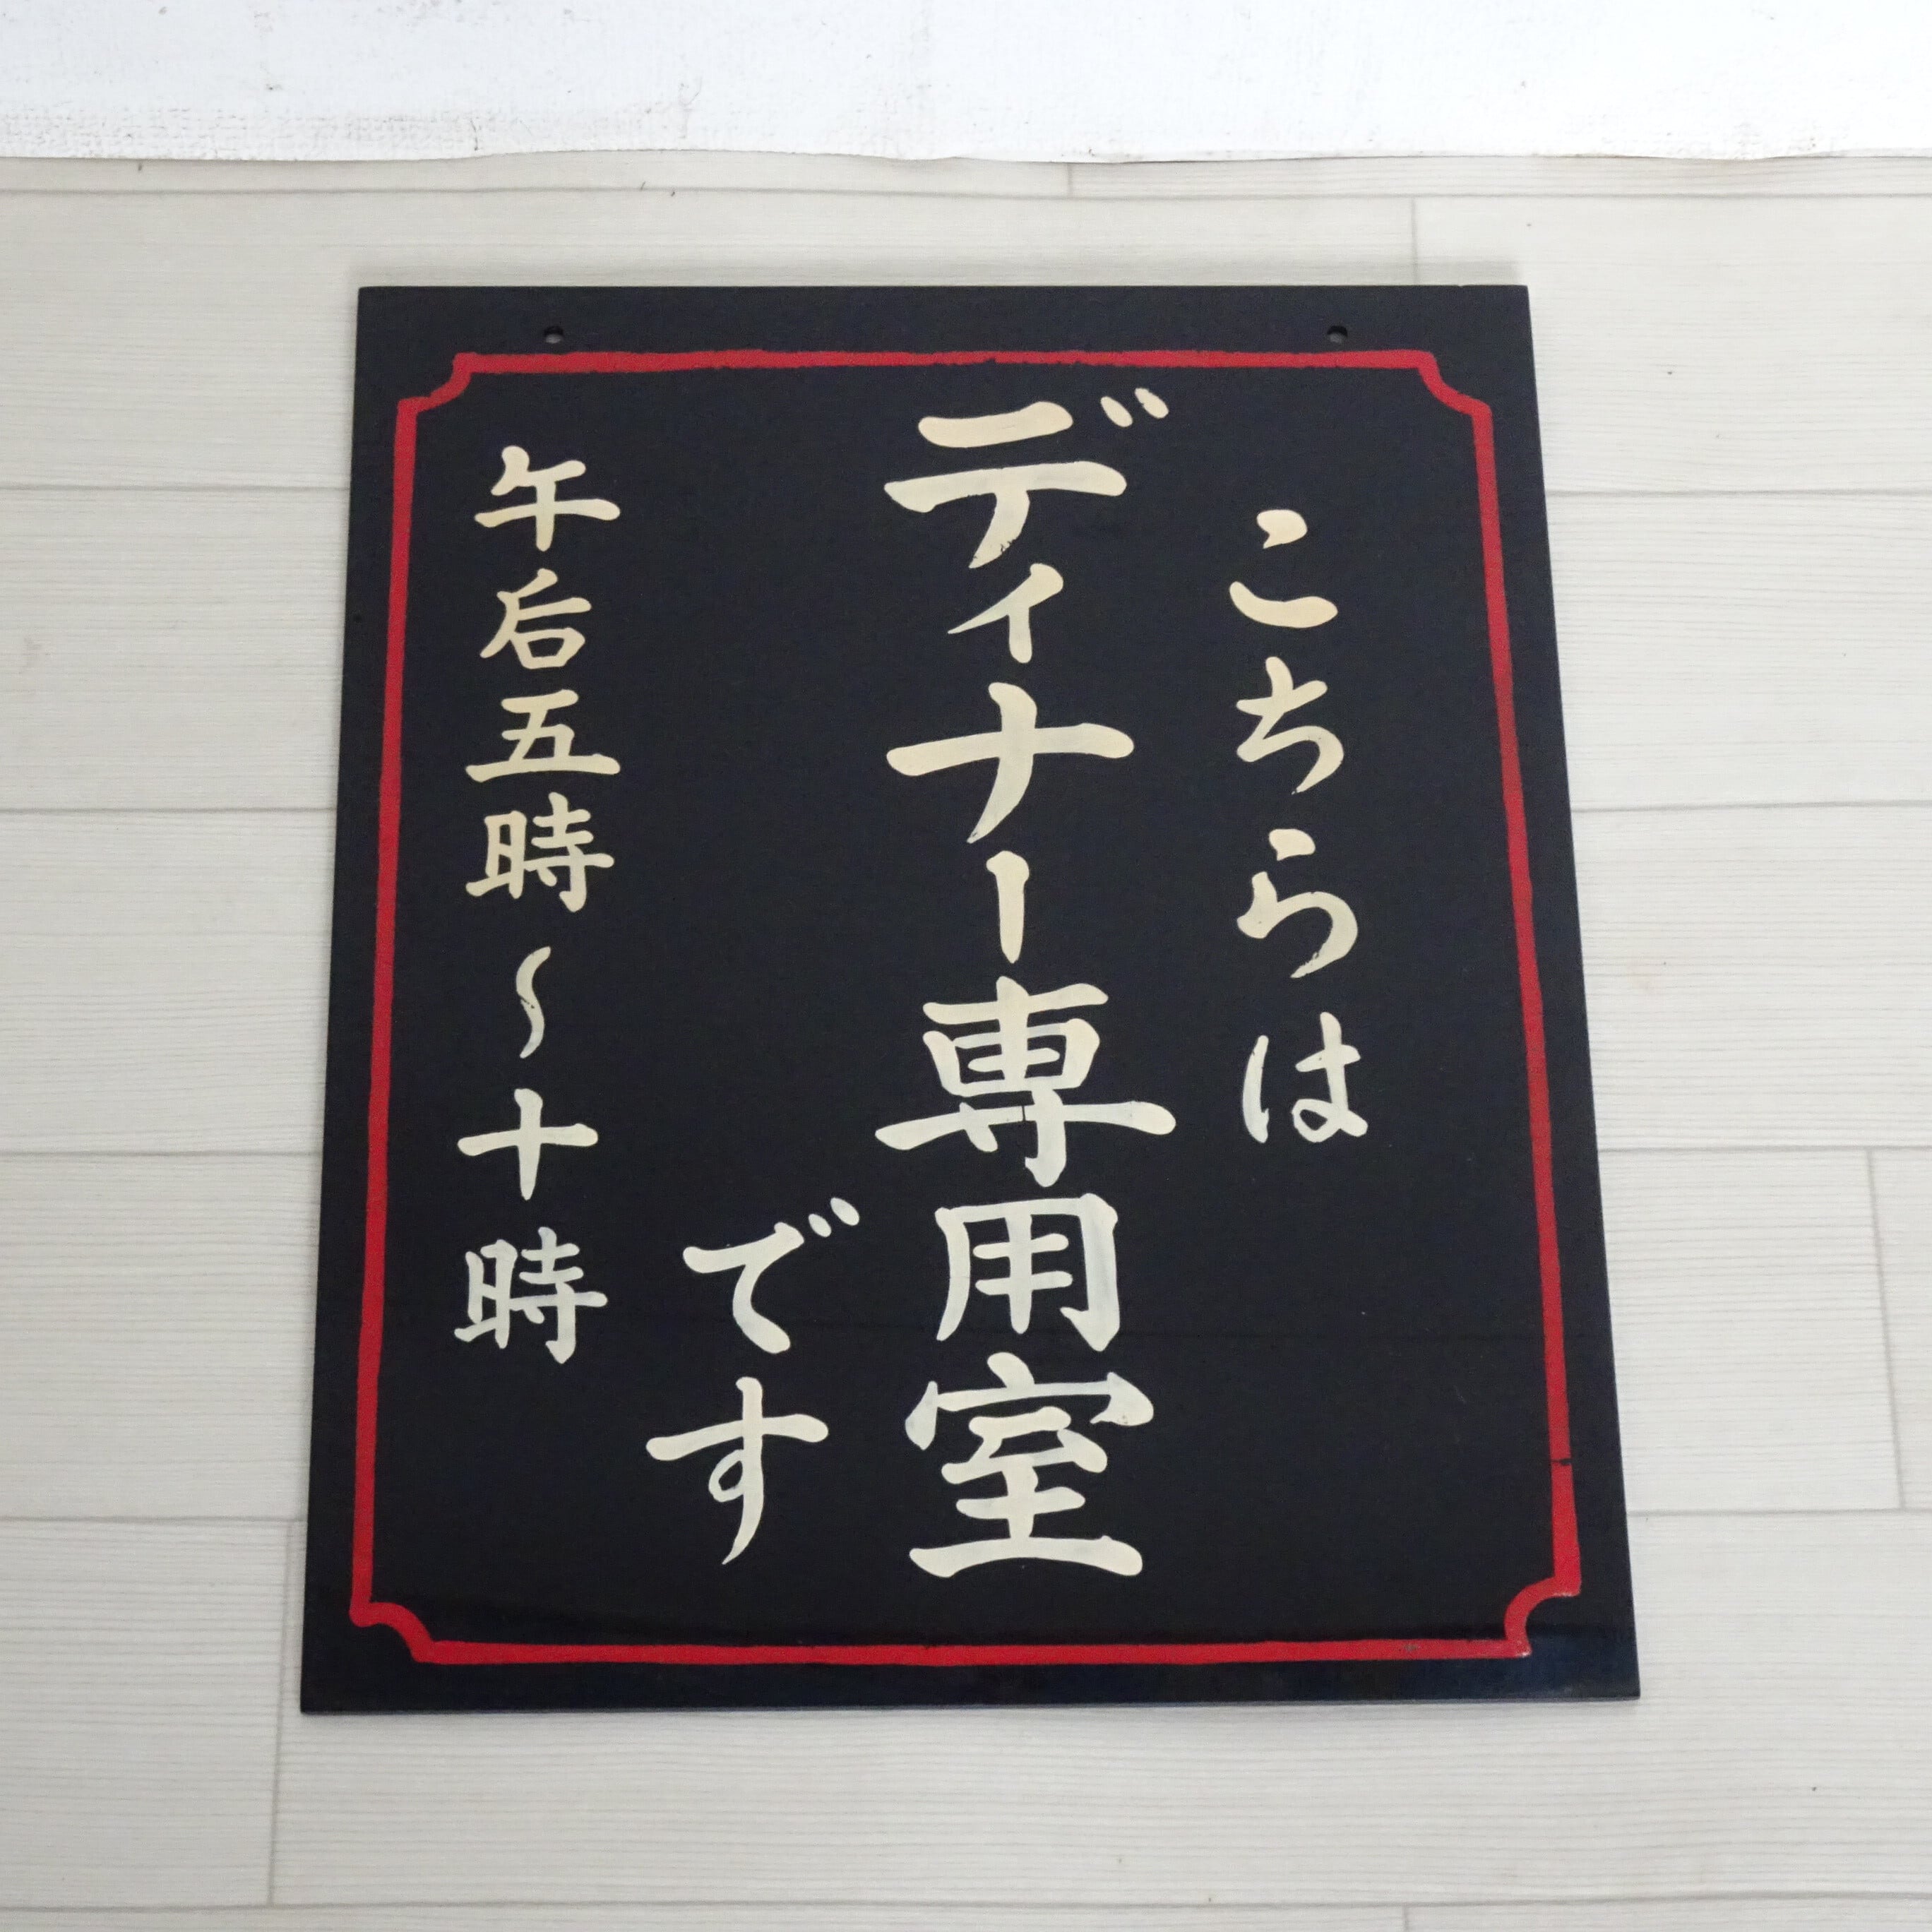 こちらは
ディナー専用室
です
午后五時〜十時